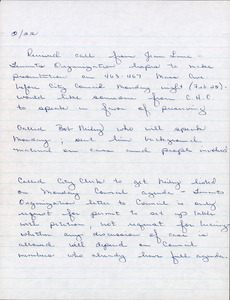 8/22
Received call from Jean Luce -
Tenants Organization hopes to make
presentation on 463-467 Mass Ave
before City Council Monday night (7 or 7:30) -
would like someone from C.H.C.
to speak in favor of preserving
Called Bob Neiley who will speak
Monday; sent him background
material on case and people involved
Called City Clerk to get Neiley listed
on Monday Council agenda - Tenants
Organization letter to Council is only
request for permit to set up table
with petition, not request for hearing
Whether any discussion of case is
allowed will depend on Council
members who already have full agenda.